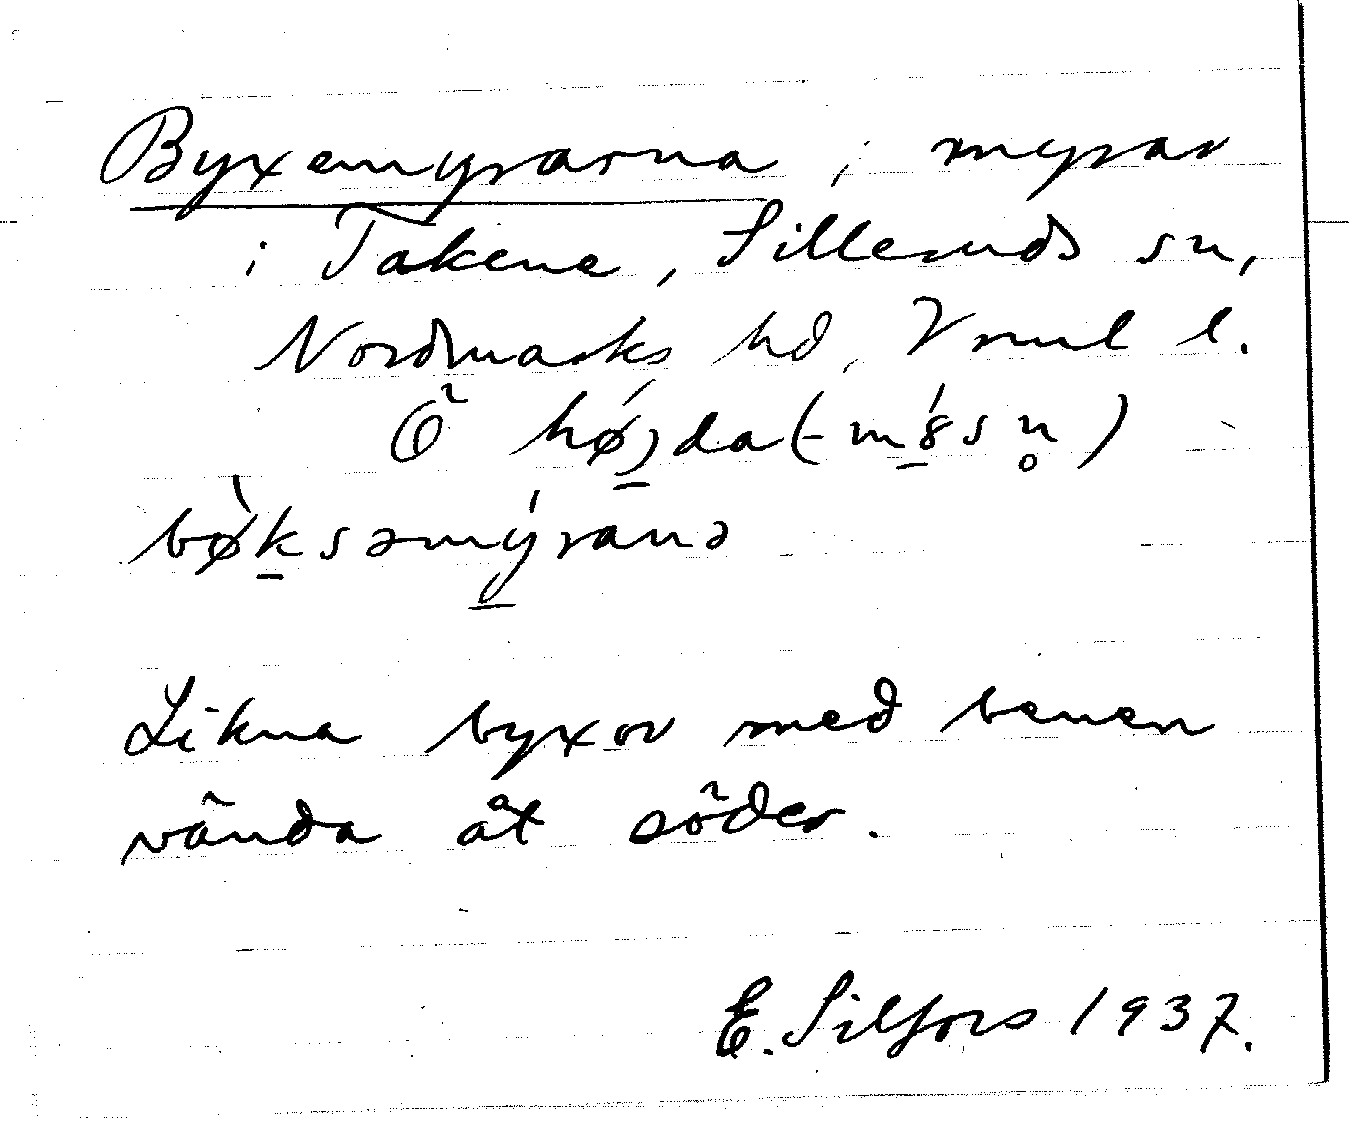 Byxemyrarna ; myrar
i Takene, Silleruds sn,
Nordmarks hd, Vrml l.
Ö hø̀jda (-m8́sn̥)
bø̀ksəmýranə
Likna byxor med benen
vända åt söder.
E. Silfors 1937.